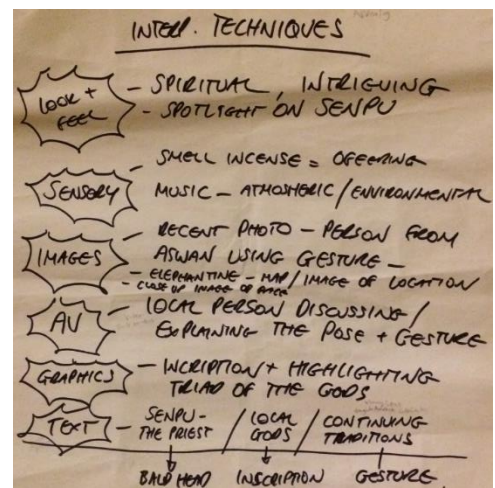 INTERP. TECHNIQUES
LOOK + FEEL
- SPIRITUAL, INTRIGUING
- SPOTLIGHT ON SENPU
SENSORY
- SMELL INCENSE = OFEERING
MUSIC - ATMOSHERIC / ENVIRONMENTAL
IMAGES
- RECENT PHOTO - PERSON FROM
ASWAN USING GESTURE -
- ELEPHANTINE - MAP / IMAGE OF LOCATION
- CLOSE UP IMAGE OF
AV
- LOCAL PERSON DISCUSSING /
EXPLAINING THE POSE + GESTURE
GRAPHICS
- INCRIPTION + HIGHLIGHTING
TRIAD OF THE GODS
TEXT
- SENPU - / LOCAL / CONTINUING
THE PRIEST GODS TRADITIONS
BALD HEAD INSCRIPTION GESTURE